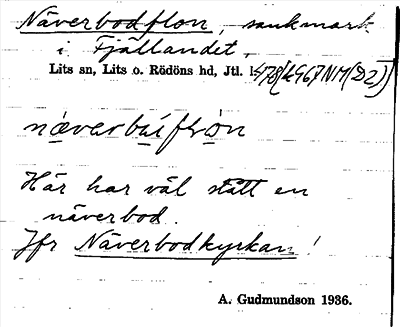 Näverbodflon, sankmark
i Fjällandet,
Lits sn, Lits o. Rödöns hd, Jtl.
Här har väl stått en
näverbod.
Jfr Näverbodkyrkan!
A. Gudmundson 1936.